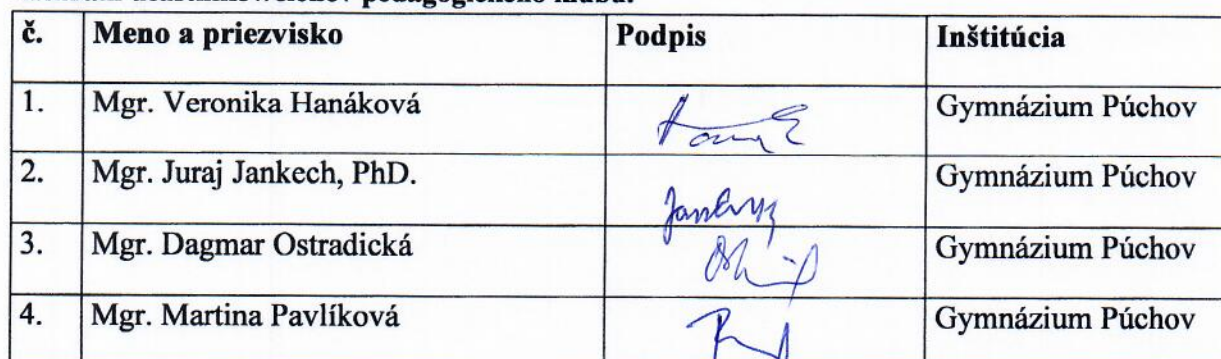 č. Meno a priezvisko Podpis Inštitúcia
1. Mgr. Veronika Hanáková Gymnázium Púchov
2. Mgr. Juraj Jankech, PhD. Gymnázium Púchov
3. Mgr. Dagmar Ostradická Gymnázium Púchov
4. Mgr. Martina Pavlíková Gymnázium Púchov